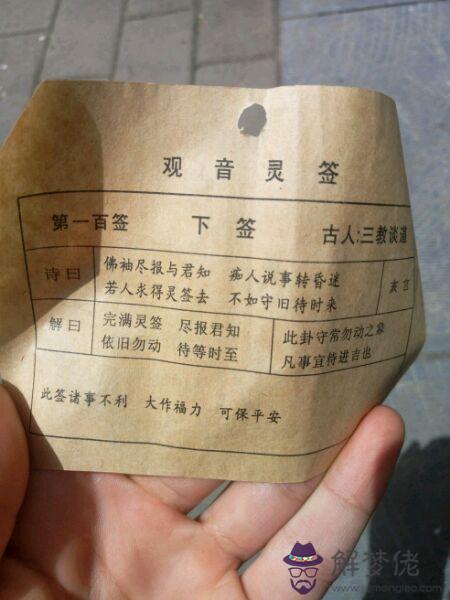 观音灵签
第一百签 下签 古人:三教谈道
诗曰
佛袖尽报与君知 痴人说事转昏迷
若人求得灵签去 不如守旧待时来
亥宫
解曰
完满灵签 尽报君知
依旧勿动 待等时至
此卦守常勿动之象
凡事宜待进吉也
此签诸事不利 大作福力 可保平安
解梦佬
jiemenglao.com